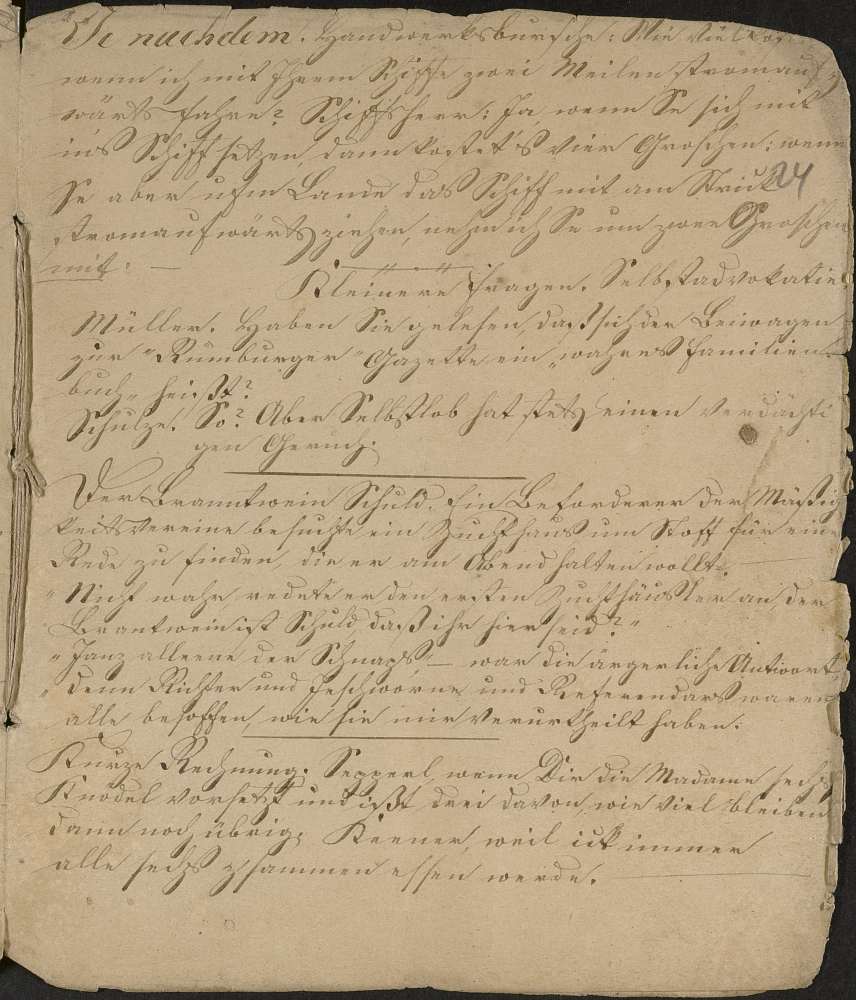 Je nachdem. Handwerksbursche: Wie viel
wenn ich mit Ihrem Schiffe zwei Meilen stromauf
wärts fahre? Schiffsherr: Ja, wenn Se sich mit
in's Schiff setzen, dann kostet's vier Groschen; wenn
Se aber ufm Lande das Schiff mit am Strick 24
stromaufwärts ziehen, nehm ich Se um zwee Groschen
mit. —
Kleinere Fragen. Selbstadvokatie.
Müller. Haben Sie gelesen, daß sich der Beiwagen
zur "Rumburger" Gazette ein „wahres Familien
buch„ heißt?
Schulze. So? Aber Selbstlob hat stets einen verdächti
gen Geruch.
Der Branntwein Schuld. Ein Beförderer der Mäßig
keitsvereine besuchte ein Zuchthaus um Stoff für eine
Rede zu finden, die er am Abend halten wollte.
"Nicht wahr, redete er den ersten Zuchthäusler an, der
Brantwein ist Schuld, daß ihr hier seid?"
"Janz alleene der Schnaps, — war die ärgerliche Antwort,
"denn Richter und Jeschworne und Referendars waren
alle besoffen, wie sie mir verurtheilt haben.
Kurze Rechnung. Sepperl, wenn Dir die Madame sechs
Knödel vorsetzt und ißt drei davon, wie viel bleiben
dann noch übrig. Keener, weil ick immer
alle sechs zsammen essen werde.